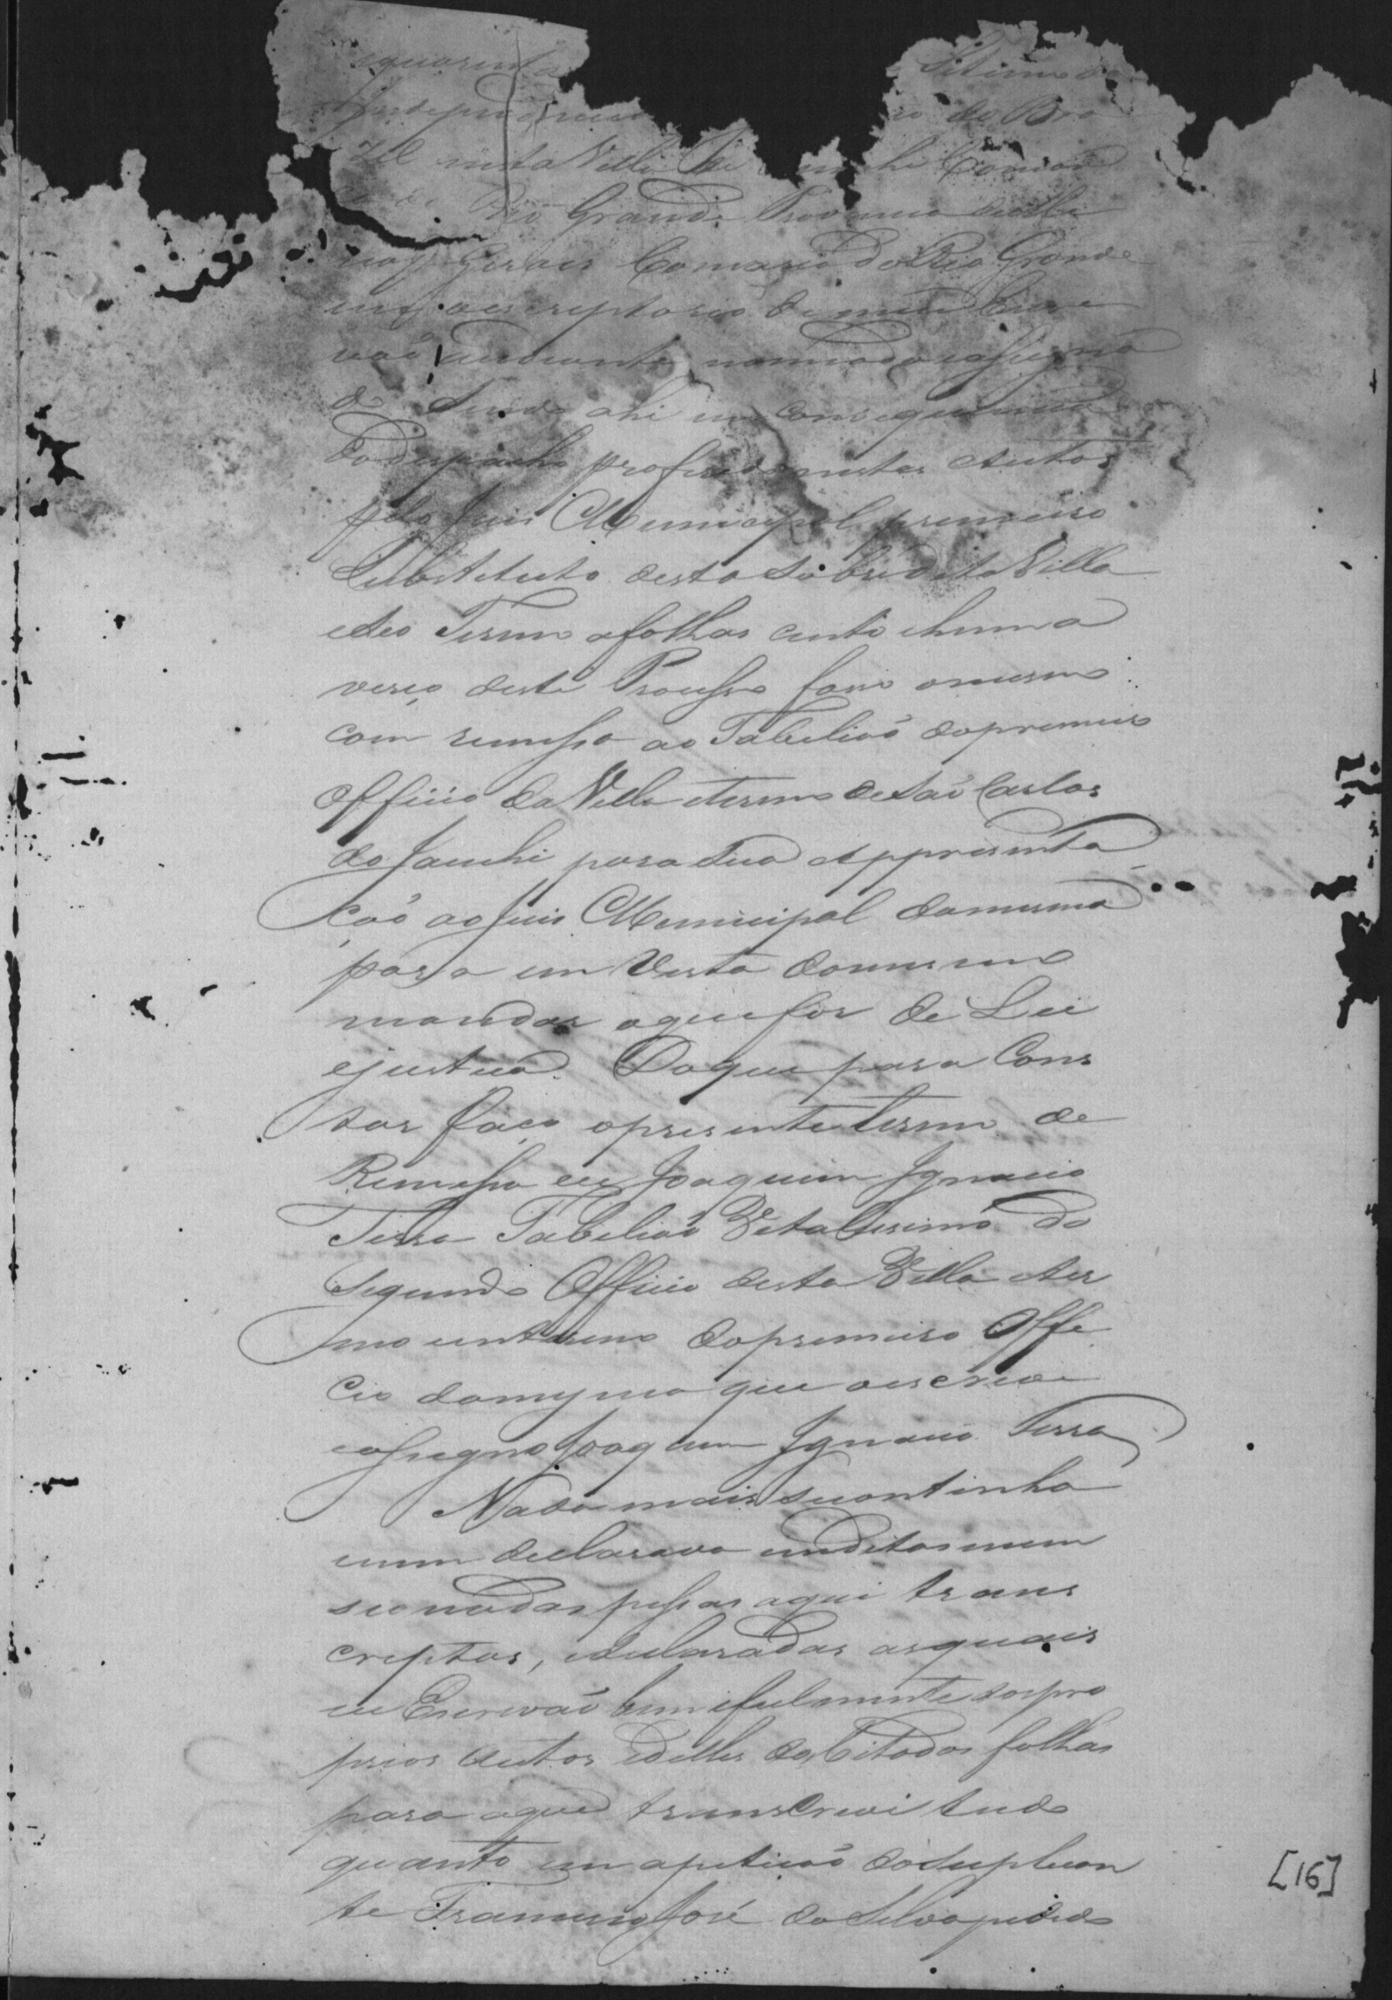 equarenta Setimo da
Independencia do Bra
zil nesta Villa de Comar
ca do Rio Grande Provincia de Mi
nas Gerais Comarca do Rio Grande
em o escriptorio de mim Escri
vão adiante nomeado e assigna
do Sendo ahi em consequencia
do despacho proferido nestes Autos
pelo Juis Municipal primeiro
Substituto desta sobredita Villa
eseo Termo afolhas cento ehuma
verço deste Processo faço omesmo
com remessa ao Tabelião doprimeiro
Officio da Villa etermo de São Carlos
do Jacuhi para sua Appresenta
ção ao Juis Municipal damesma
para em vista domesmo
mandar oque for de Lei
ejustiça. Doque para Cons
tar faço opresente termo de
Remessa eu Joaquim Ignacio
Terra Tabelião Vitalicio do
Segundo Officio desta Villa eter
mo enterino doprimeiro Offi
cio damesma que oescrevi
eassigno Joaquim Ignacio Terra
Nada mais secontinha
enem declarava emditas men
sionadas pessas aqui trans
criptas, edeclaradas asquais
eu Escrivão bem efielmente dos pro
prios autos edellas das Citadas folhas
para aqui transcrevi tudo
quanto em apetição do Suplican
te Francisco José da Silva pedido
[16]